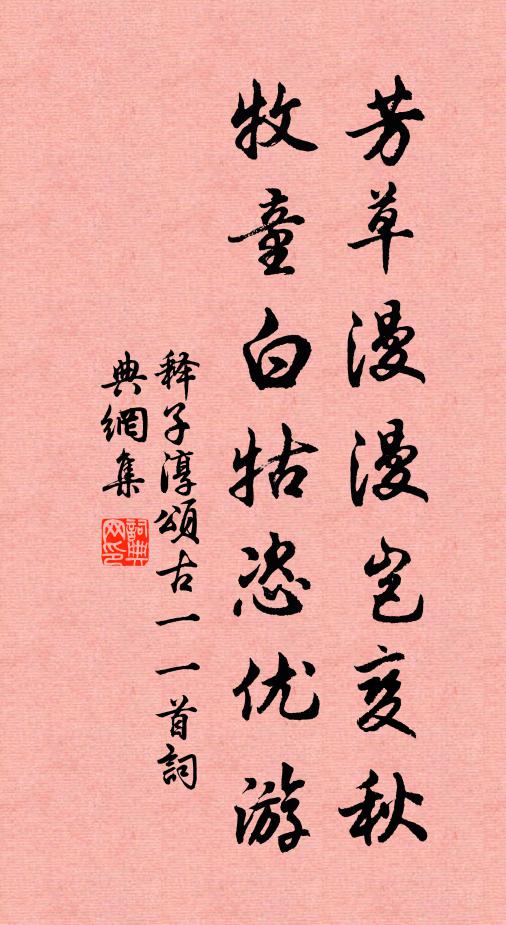 芳草漫漫岂变秋
牧童白牯恣优游
释子淳頌古一一首詞
典網集
詞典網印